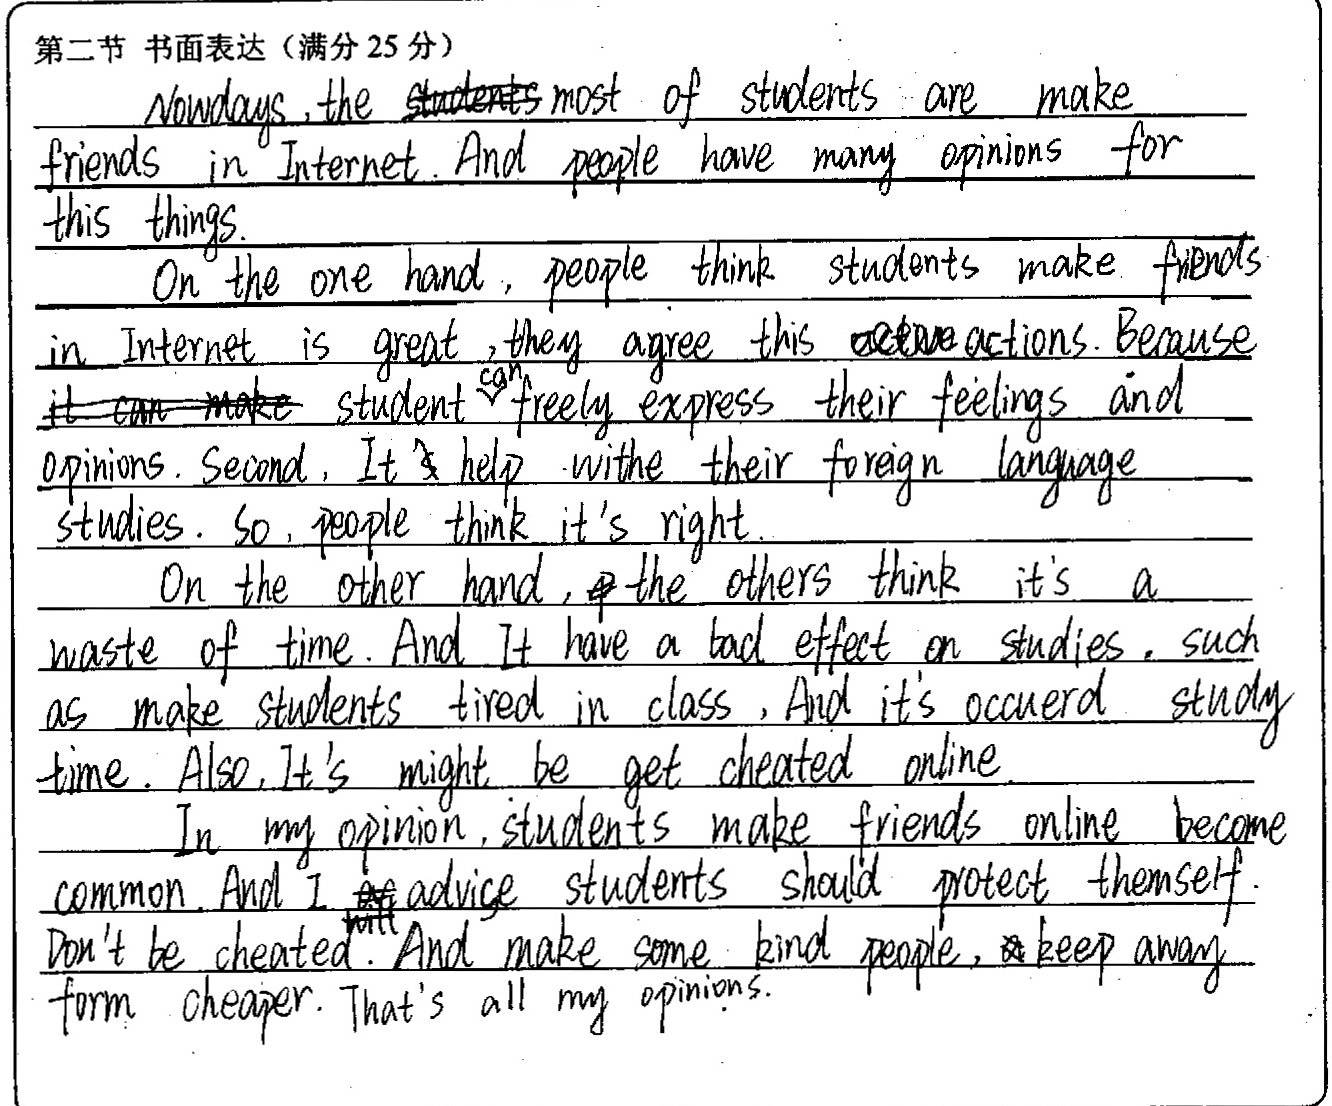 第二节 书面表达（满分 25 分）
Nowdays, the students most of students are make
friends in Internet. And people have many opinions for
this things.
On the one hand, people think students make friends
in Internet is great, they agree this active actions. Because
it can make student can freely express their feelings and
opinions. Second, It help withe their foreign language
studies. So, people think it's right.
On the other hand, the others think it's a
waste of time. And It have a bad effect on studies. such
as make students tired in class, And it's occuerd study
time. Also, It's might be get cheated online.
In my opinion, students make friends online become
common. And I advice students should protect themself.
Don't be cheated. And make some kind people, keep away
form cheaper. That's all my opinions.